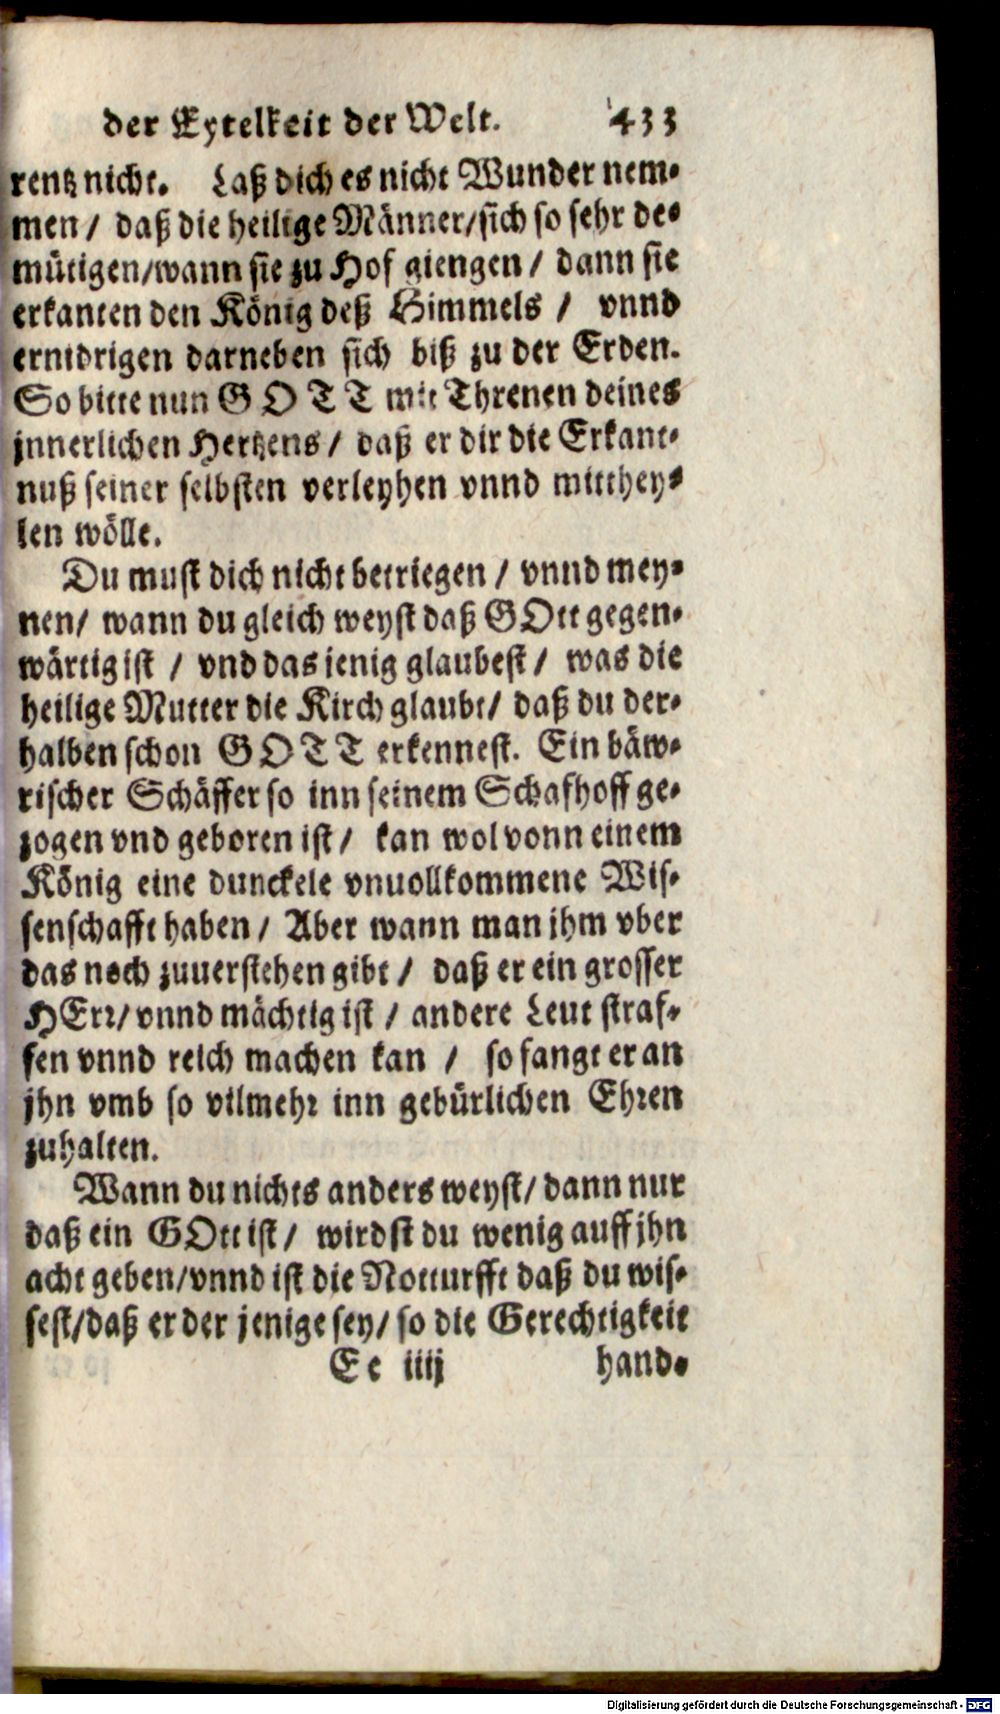 der Eytelkeit der Welt. 433
rentz nicht. Laß dich es nicht Wunder nem-
men / daß die heilige Männer/sich so sehr de-
mütigen/wann sie zu Hof giengen / dann sie
erkanten den König deß Himmels / vnnd
ernidrigen darneben sich biß zu der Erden.
So bitte nun GOTT mit Threnen deines
jnnerlichen Hertzens / daß er dir die Erkant-
nuß seiner selbsten verleyhen vnnd mitthey-
len wölle.
Du must dich nicht betriegen / vnnd mey-
nen/ wann du gleich weyst daß GOtt gegen-
wärtig ist / vnd das jenig glaubest / was die
heilige Mutter die Kirch glaubt/ daß du der-
halben schon GOTT erkennest. Ein bäw-
rischer Schäffer so inn seinem Schafhoff ge-
zogen vnd geboren ist / kan wol vonn einem
König eine dunckele vnuollkommene Wis-
senschafft haben / Aber wann man jhm vber
das noch zuuerstehen gibt / daß er ein grosser
HErr/ vnnd mächtig ist / andere Leut straf-
fen vnnd reich machen kan / so fangt er an
jhn vmb so vilmehr inn gebürlichen Ehren
zuhalten.
Wann du nichts anders weyst/ dann nur
daß ein GOtt ist / wirdst du wenig auff jhn
acht geben/vnnd ist die Notturfft daß du wis-
sest/daß er der jenige sey/ so die Gerechtigkeit
Ee iiij hand-
Digitalisierung gefördert durch die Deutsche Forschungsgemeinschaft - DFG